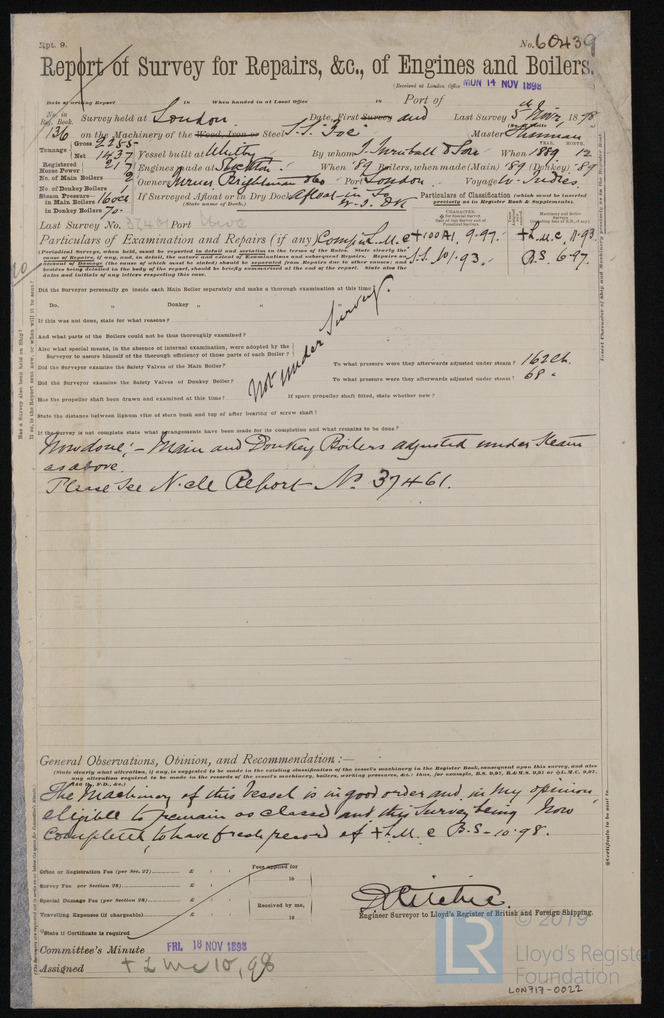 Rpt. 9.
No. 60439
Report of Survey for Repairs, &c., of Engines and Boilers.
(Received at London Office MON 14 NOV 1898
Date of writing Report 18 When handed in at Local Office 18 Port of
No. in Reg. Book. Survey held at London Date, First Survey and Last Survey 5 Nov, 1898
136 on the Machinery of the Wood, Iron or Steel S.S. Master
Tonnage Gross 2255 Net 1437 Vessel built at Whitby By whom T. Turnbull & Son When 1889 12
Registered Horse Power 217 Engines made at Stockton When '89 Boilers, when made (Main) '89 (Donkey) '89
No. of Main Boilers 2
No. of Donkey Boilers 1 Owners Turner Brightman & Co Port London Voyage W. Indies.
Steam Pressure in Main Boilers 160 If Surveyed Afloat or in Dry Dock Afloat in
in Donkey Boilers 70 (State name of Dock.) W. I. Dk
Particulars of Classification (which must be inserted precisely as in Register Book & Supplements.
Last Survey No. 37461 Port
Particulars of Examination and Repairs (if any) +100A1. 9.97. +L.M.C. 11.93
S.S. 10/1.93. B.S. 6.97.
Did the Surveyor personally go inside each Main Boiler separately and make a thorough examination at this time
Do. Donkey
If this was not done, state for what reasons?
And what parts of the Boilers could not be thoroughly examined?
Also what special means, in the absence of internal examination, were adopted by the
Surveyor to assure himself of the thorough efficiency of those parts of each Boiler?
Not under Survey.
Did the Surveyor examine the Safety Valves of the Main Boiler? To what pressure were they afterwards adjusted under steam? 162
Did the Surveyor examine the Safety Valves of Donkey Boiler? To what pressure were they afterwards adjusted under steam? 68 "
Has the propeller shaft been drawn and examined at this time? If spare propeller shaft fitted, state whether new?
State the distance between lignum vitæ of stern bush and top of after bearing of screw shaft?
If the Survey is not complete state what arrangements have been made for its completion and what remains to be done?
Now done:- Main and Donkey Boilers adjusted under steam
as above.
Please see N.cle Report No. 37461.
General Observations, Opinion, and Recommendation:—
(State clearly what alteration, if any, is suggested to be made in the existing classification of the vessel's machinery in the Register Book, consequent upon this survey, and also
any alteration required to be made in the records of the vessel's machinery, boilers, working pressures, &c.: thus, for example, B.S. 9,97, B.&M.S. 9,97 or L.M.C. 9,97,
The Machinery of this Vessel is in good order and in my opinion
eligible to remain as classed and this Survey being now
completed, to have fresh record of +L.M.C B.S-10.98.
Office or Registration Fee (per Sec. 27) £ Fees applied for
Survey Fee per Section 28) £ 18
Special Damage Fee (per Section 28) £ Received by me,
Travelling Expenses (if chargeable) £ 18
Engineer Surveyor to Lloyd's Register of British and Foreign Shipping.
State if Certificate is required
Committee's Minute FRI. 18 NOV 1898
Assigned + L M C 10, 98
© 2019
LR
Lloyd's Register
Foundation
LON717-0022